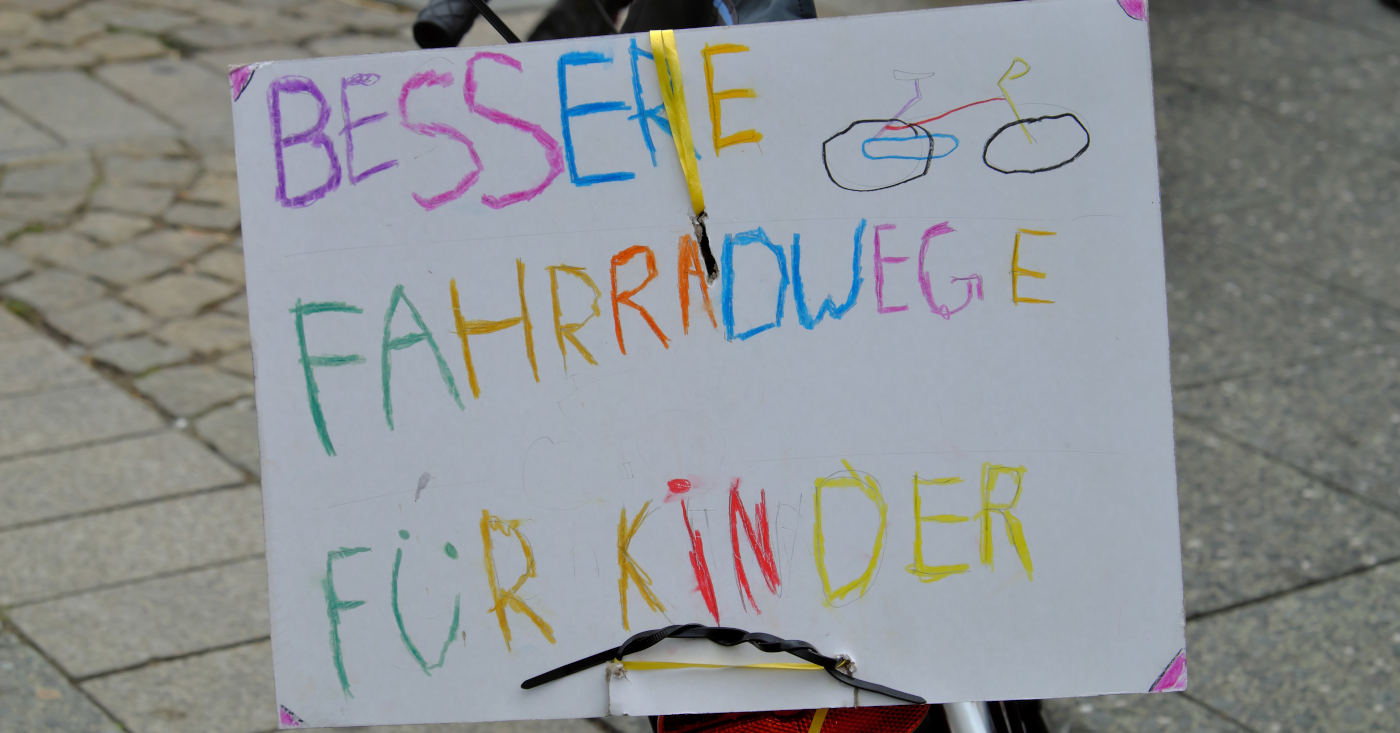 BESSERE
FAHRRADWEGE
FÜR KiNDER